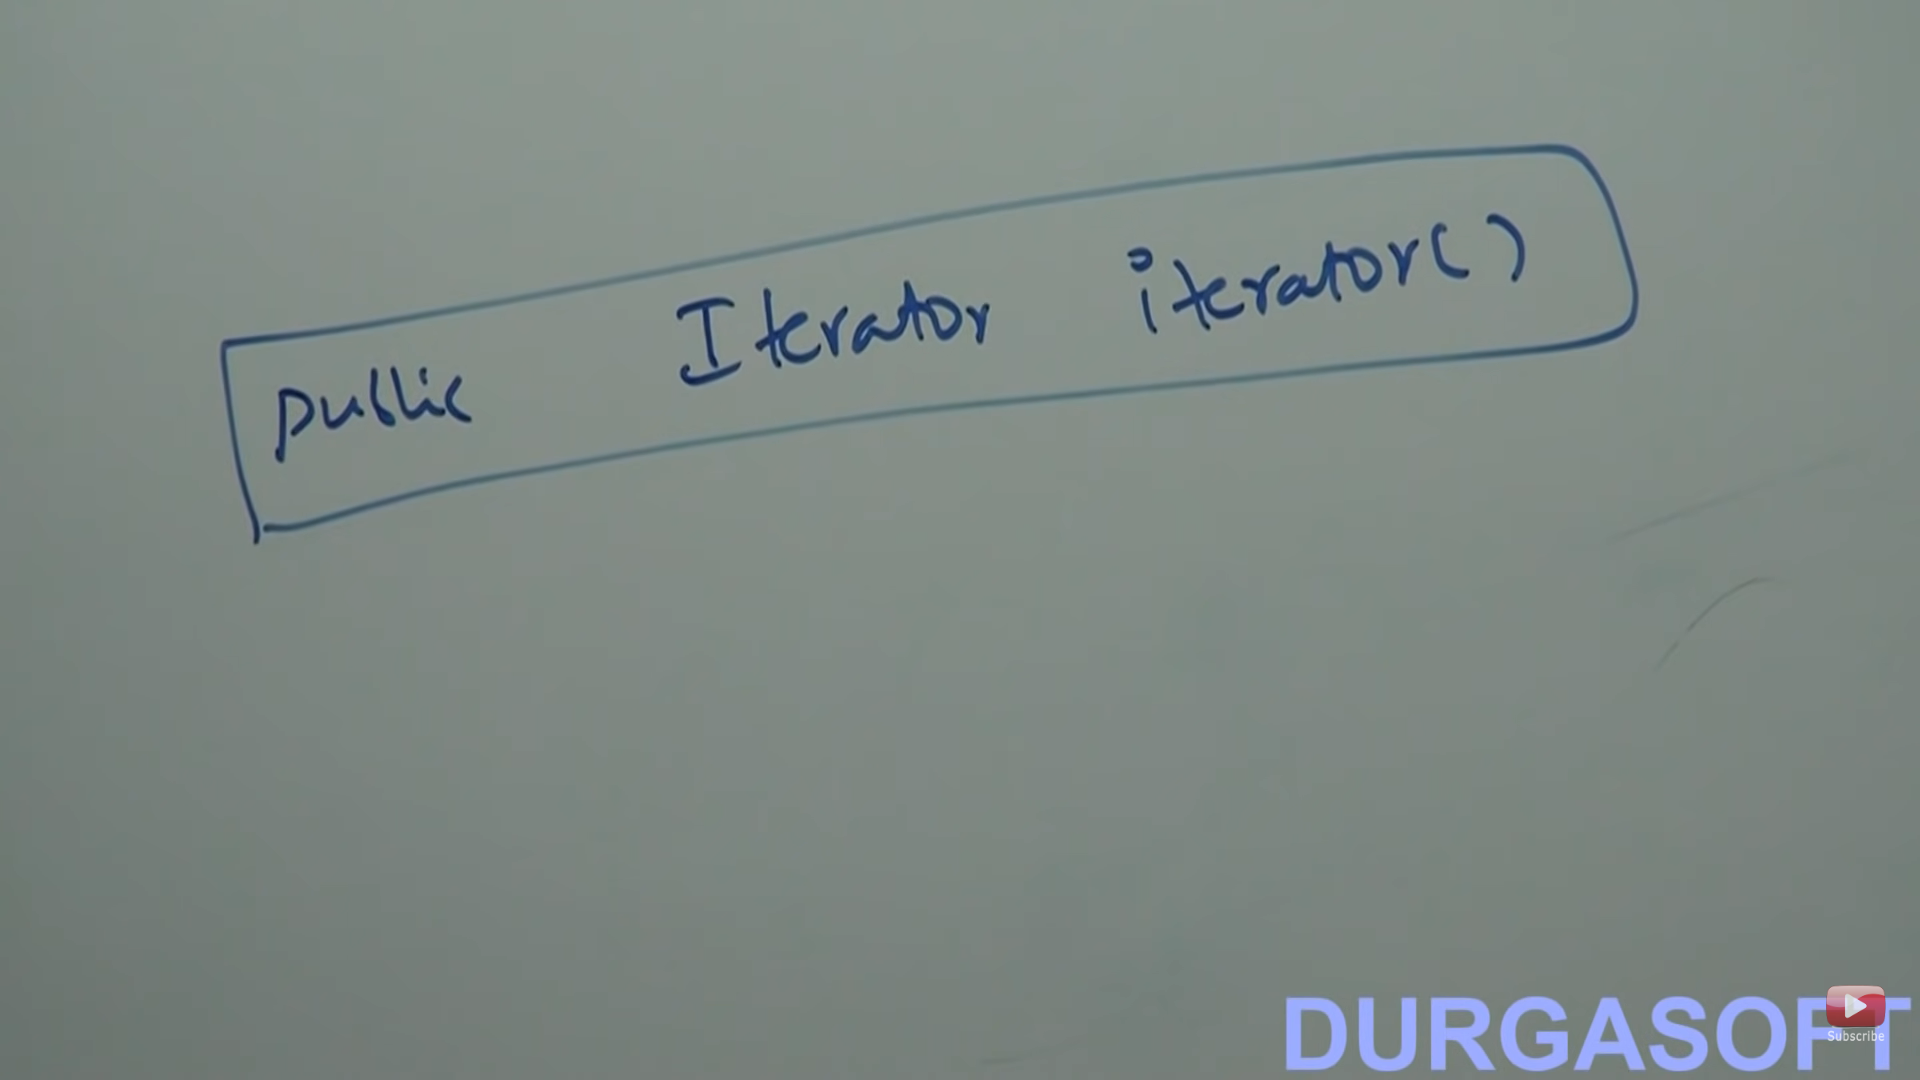 public Iterator iterator()
DURGASOFT
Subscribe